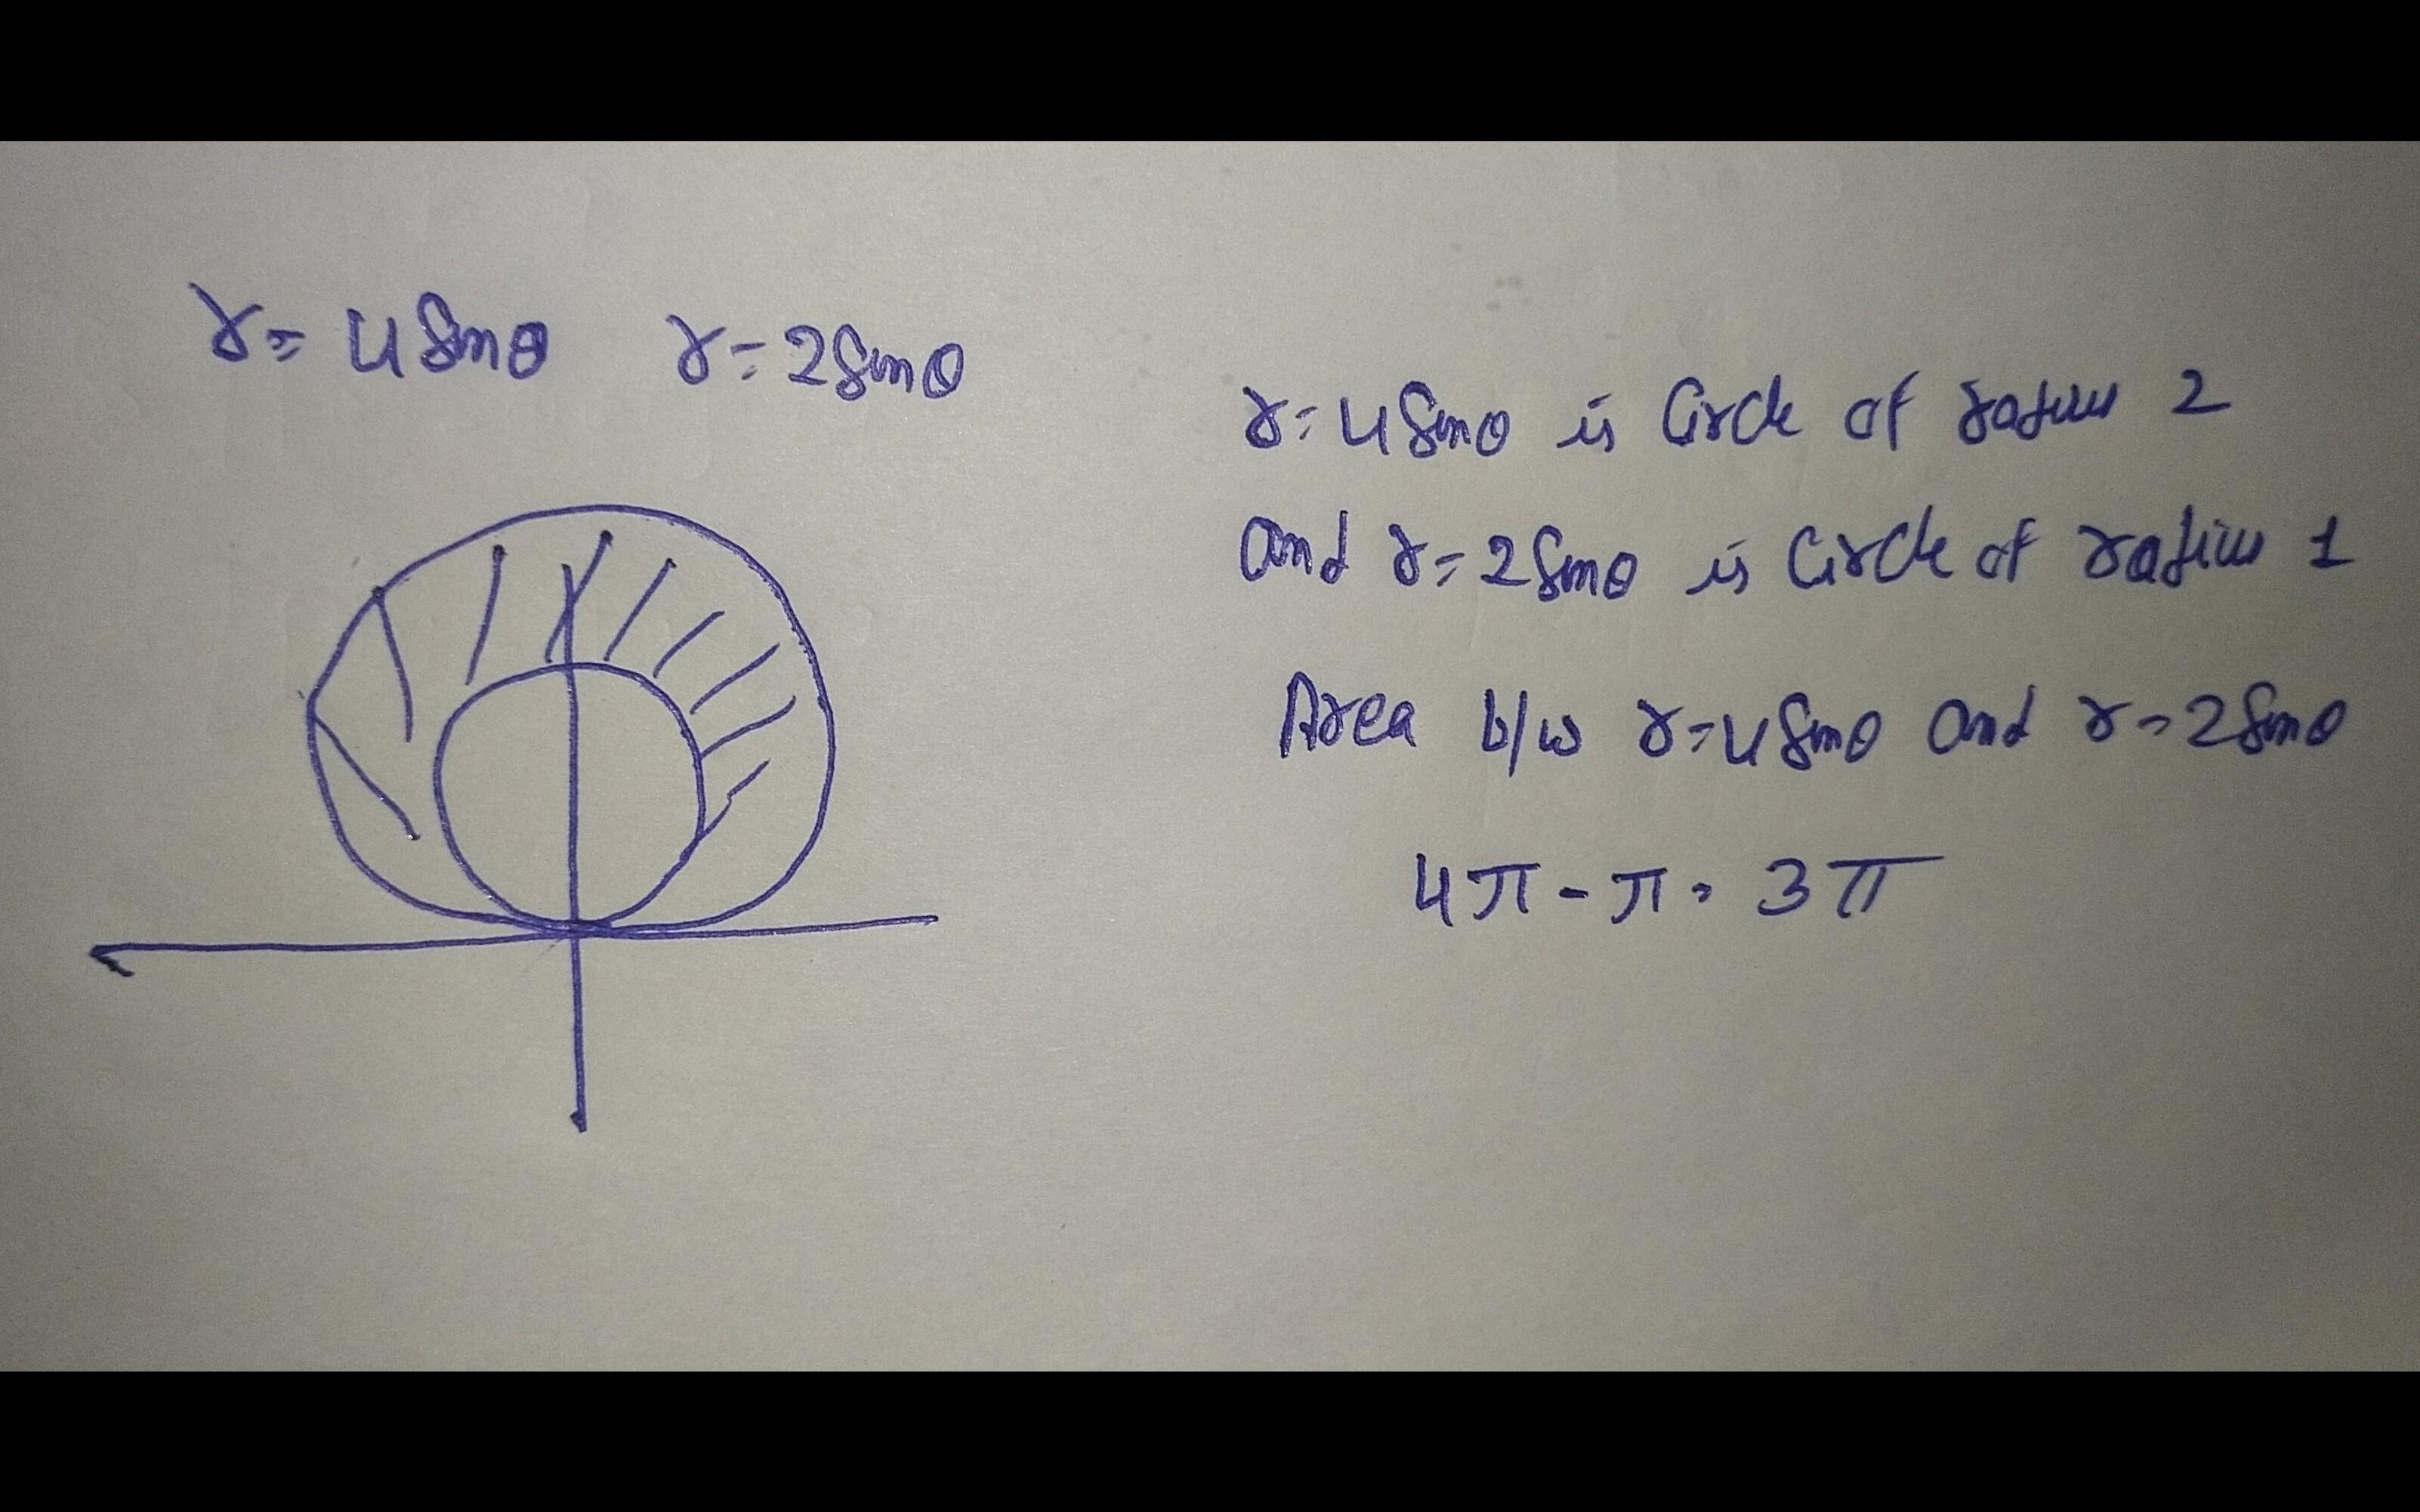 r = 4 sinθ r = 2 sinθ
r = 4 sinθ is Circle of radius 2
and r = 2 sinθ is Circle of radius 1
Area b/w r = 4 sinθ and r = 2 sinθ
4π - π = 3π